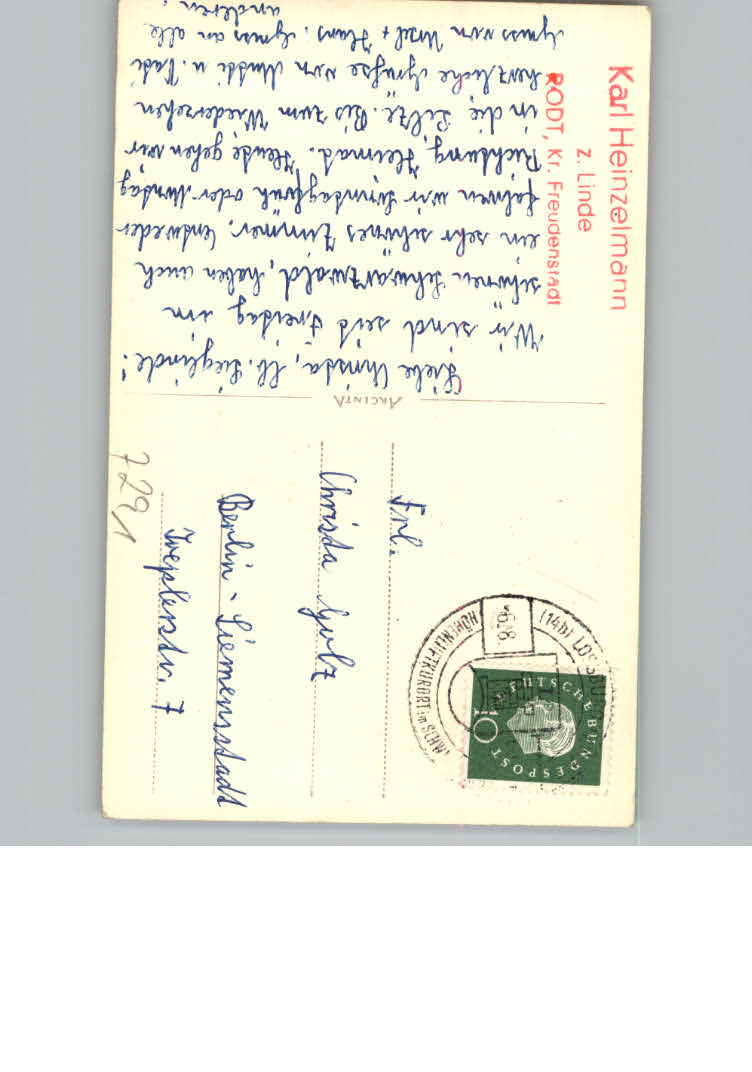 Karl Heinzelmann
z. Linde
RODT, Kr. Freudenstadt
Liebe Christa, lb. Sieglinde!
Wir sind seit Freitag im
schönen Schwarzwald, haben auch
ein sehr schönes Zimmer. Entweder
fahren wir Sonntagfrüh oder Montag
Richtung Heimat. Heute gehen wir
in die Selze. Bis zum Wiedersehen
herzliche Grüsse von Mutti u. Vati
Gruss von Ursel + Hans. Gruss an alle
anderen.
ARCINTA
Frl.
Christa Golz
Berlin - Siemensstadt
7
7291
(14b) LOSSBURG
HÖHENLUFTKURORT im SCHW
-6.8.
DEUTSCHE BUNDESPOST
10